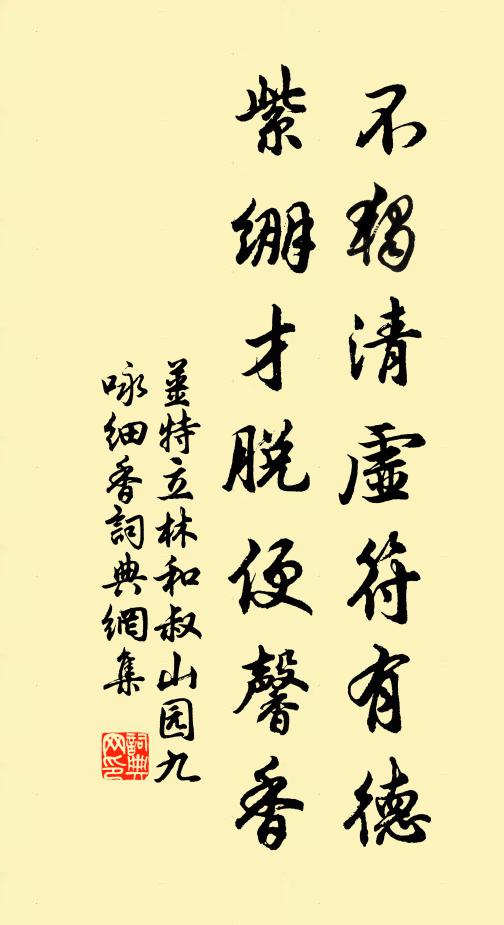 不獨清虛符有德
紫绷才脫便馨香
薑特立林和叔山园九
咏细香詞典網集
詞典
网印